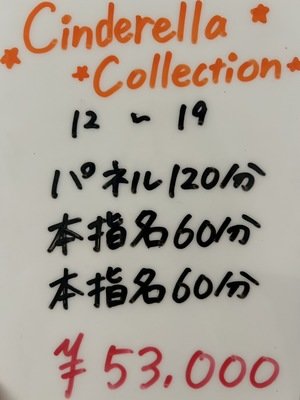 Cinderella
Collection
12〜19
パネル120分
本指名60分
本指名60分
¥53.000